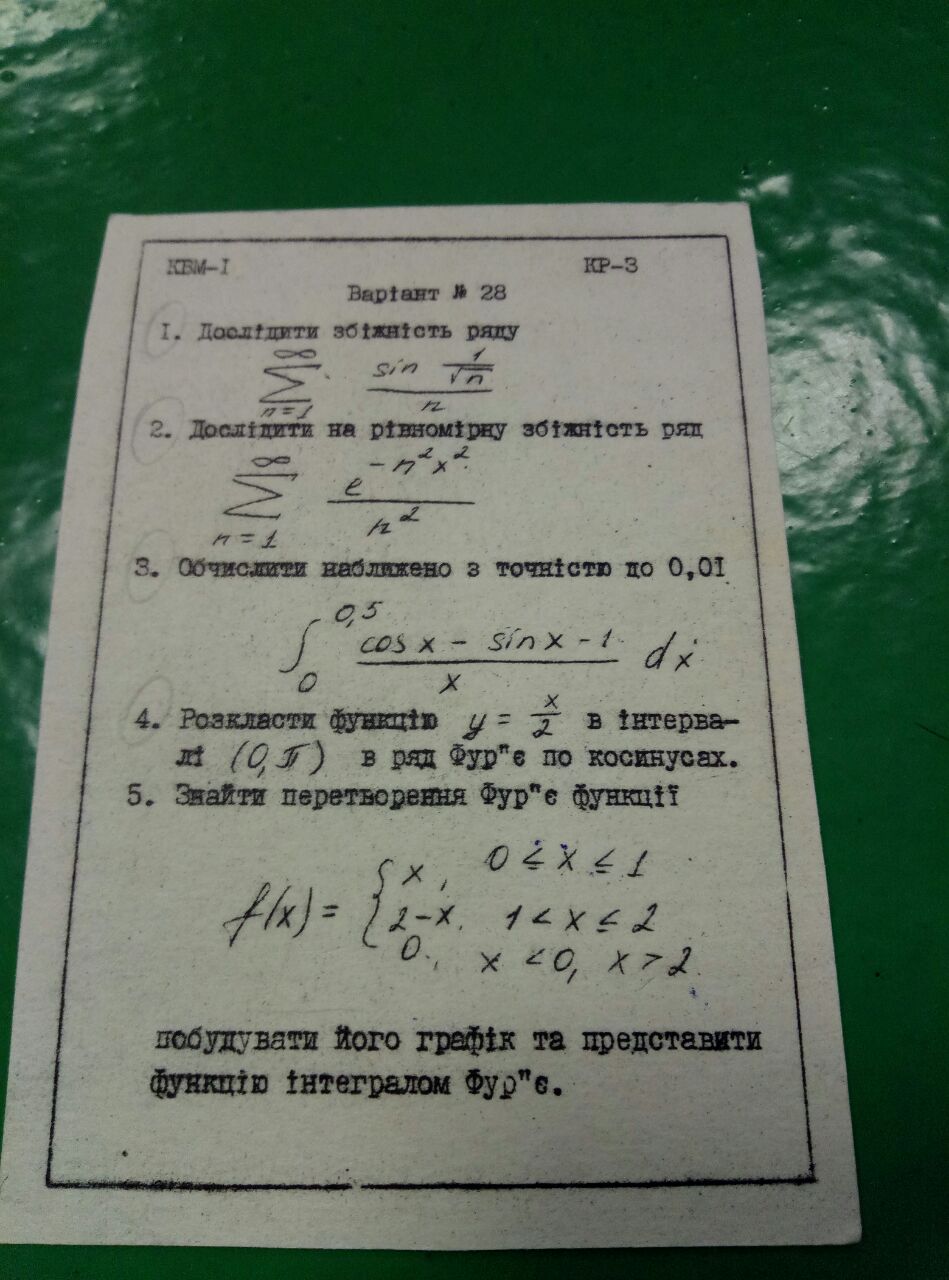 КВМ-I КР-3
Варіант № 28
I. Дослідити збіжність ряду
∞
∑ sin 1/√n / n
n=1
2. Дослідити на рівномірну збіжність ряд
∞
∑ e^(-n²x²) / n²
n=1
3. Обчислити наближено з точністю до 0,0I
∫₀^0,5 (cos x - sin x - 1)/x dx
4. Розкласти функцію y = x/2 в інтерва-
лі (0,π) в ряд Фур"є по косинусах.
5. Знайти перетворення Фур"є функції
x, 0 ≤ x ≤ 1
f(x) = { 2-x, 1 < x ≤ 2
0, x < 0, x > 2
побудувати його графік та представити
функцію інтегралом Фур"є.